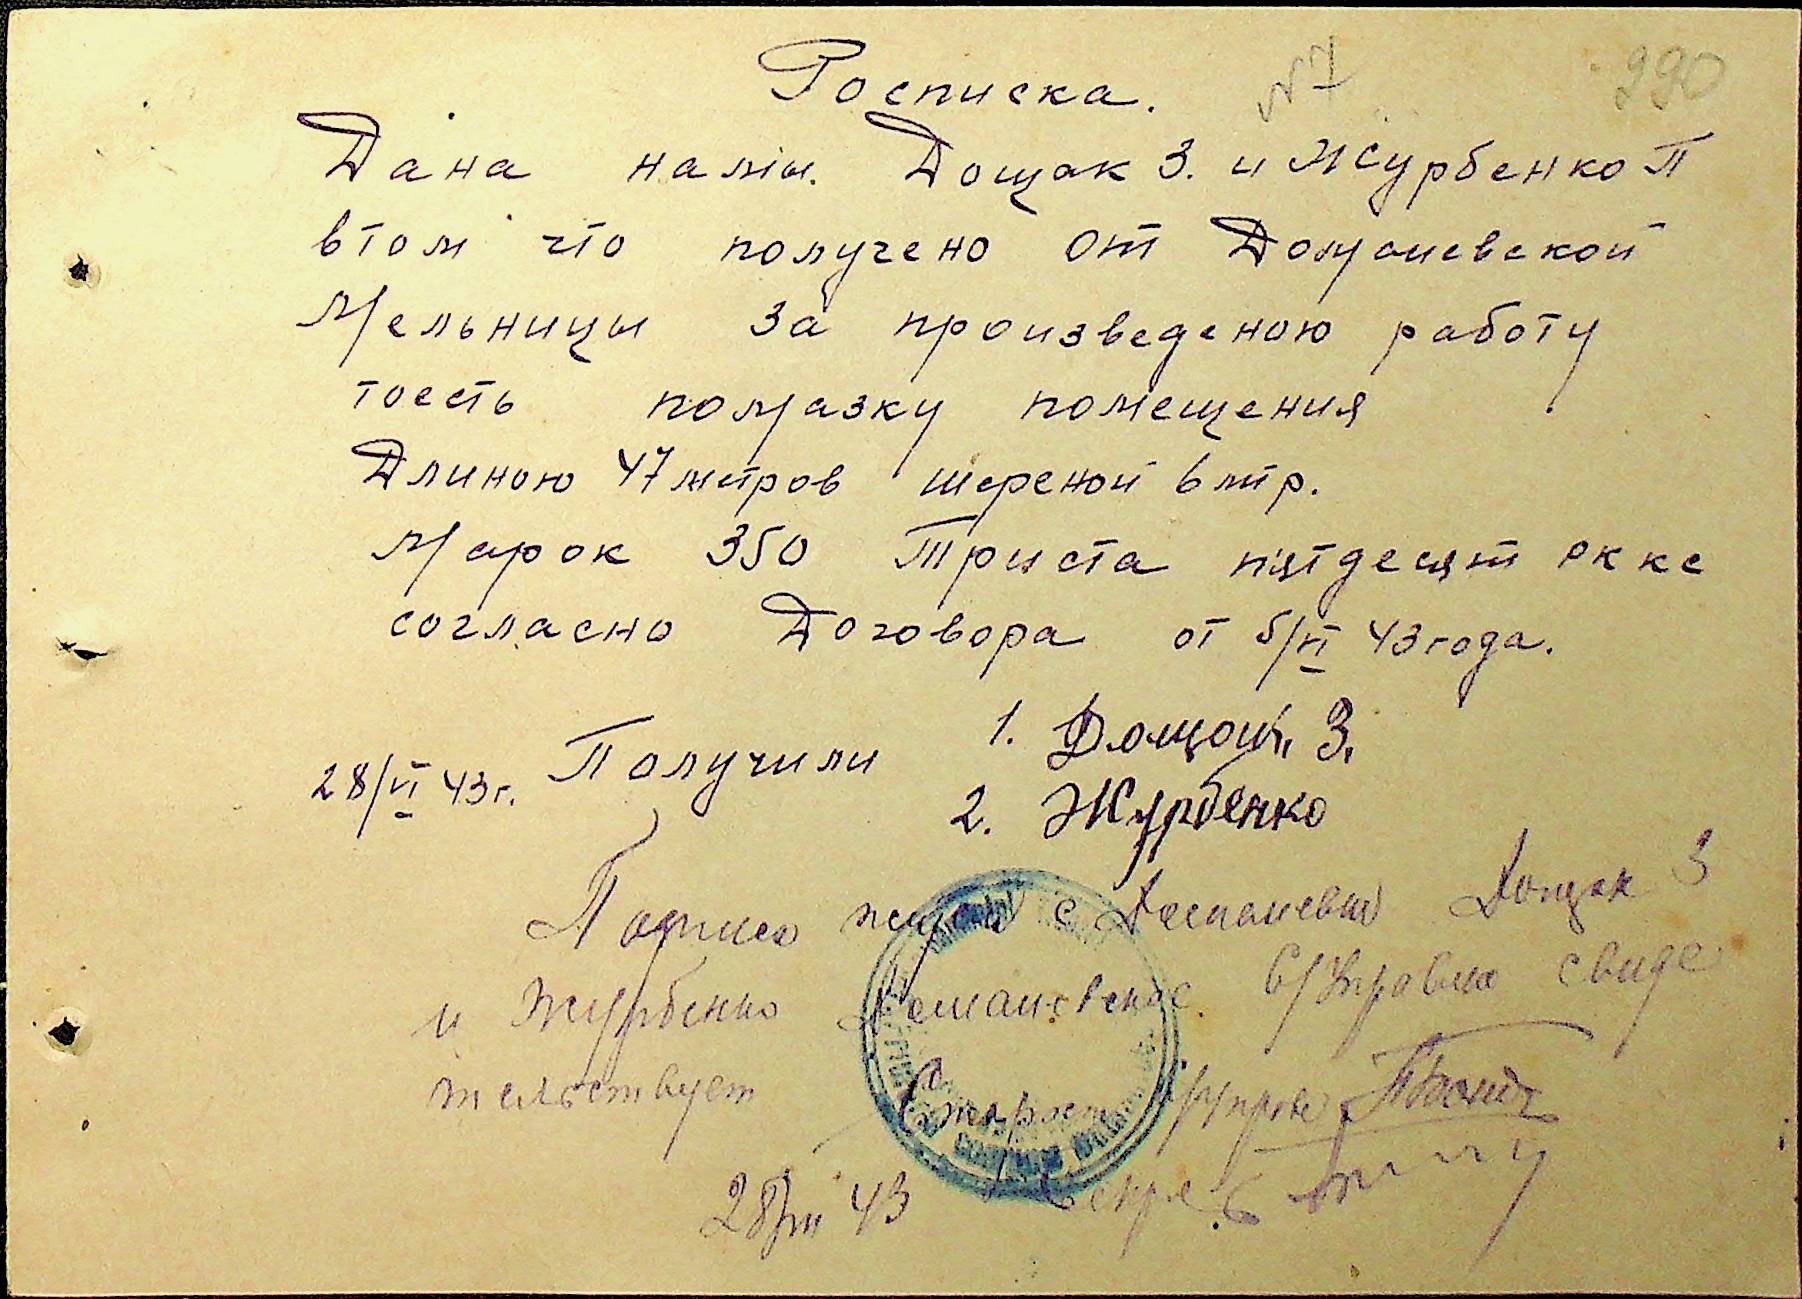 Росписка. N7 290
Дана нами. Дощак З. и Журбенко П
втом что получено от Домашевской
Мельницы за произведеною работу
тоесть помазку помещения
Длиною 47 метров шереной 6 мтр.
Марок 350 Триста пятдесят рккс
согласно Договора от 5/VI 43 года.
28/VI 43 г. Получили 1. З.
2. Журбенко
Подписи с Дощак З
и Журбенко С/Управление свиде
тельствует Староста
28/VI 43 Секре